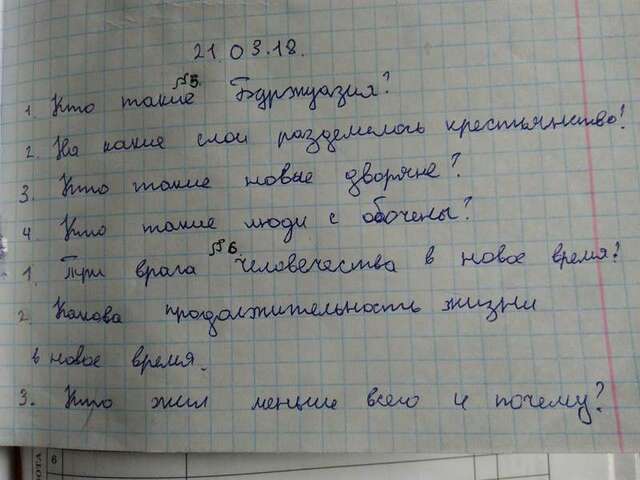 21.03.18.
§5.
1. Кто такие Буржуазия?
2. На какие слои разделилось крестьянство!
3. Кто такие новые дворяне?
4. Кто такие люди с обочены?
§6.
1. Три врага человечества в новое время?
2. Какова продолжительность жизни
в новое время.
3. Кто жил меньше всего и почему?
6
ОТА